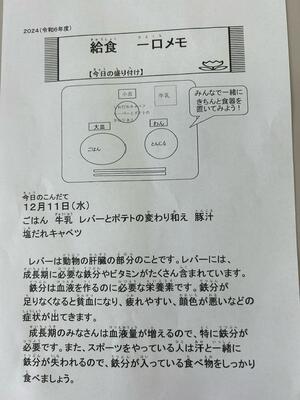 2024(令和6年度)
給食 一口メモ
【今日の盛り付け】
小皿
牛乳
大皿
わん
ごはん
とんじる
みんなで一緒に
きちんと食器を
置いてみよう!
今日のこんだて
12月11日(水)
ごはん 牛乳 レバーとポテトの変わり和え 豚汁
塩だれキャベツ
レバーは動物の肝臓の部分のことです。レバーには、
成長期に必要な鉄分やビタミンがたくさん含まれています。
鉄分は血液を作るのに必要な栄養素です。鉄分が
足りなくなると貧血になり、疲れやすい、顔色が悪いなどの
症状が出てきます。
成長期のみなさんは血液量が増えるので、特に鉄分が
必要です。また、スポーツをやっている人は汗と一緒に
鉄分が失われるので、鉄分が入っている食べ物をしっかり
食べましょう。